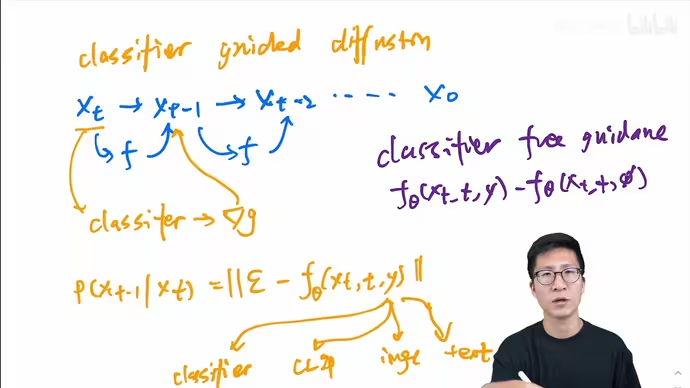 classifier guided diffusion
xₜ → xₜ₋₁ → xₜ₋₂ ····· x₀
f f
classifier → ∇g
classifier free guidane
f_θ(xₜ,t,y) - f_θ(xₜ,t,∅)
p(xₜ₋₁|xₜ) = ||ε - f_θ(xₜ,t,y)||
classifier CLIP imge text
bilibili